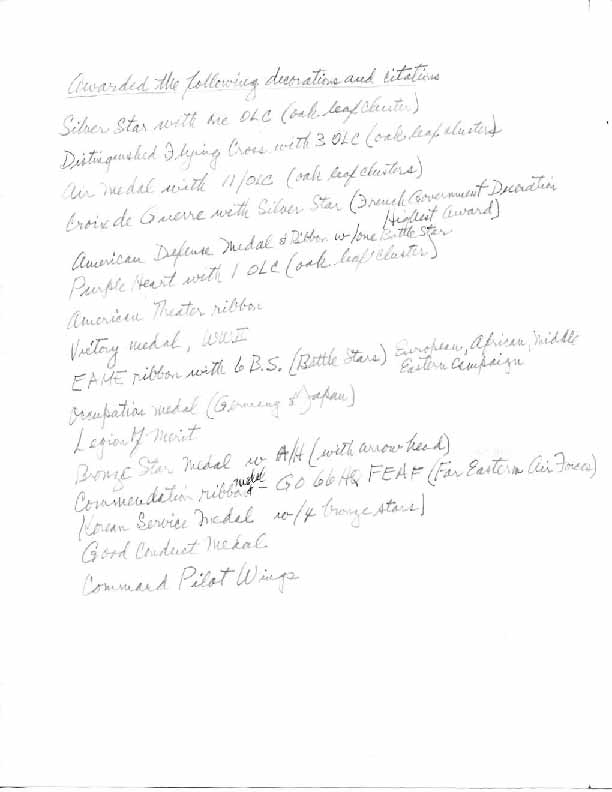 Awarded the following decorations and citations
Silver Star with one OLC (oak leaf cluster)
Distinguished Flying Cross with 3 OLC (oak leaf clusters)
Air Medal with 11/OLC (oak leaf clusters)
Croix de Guerre with Silver Star (French Government Decoration
Highest Award)
American Defense Medal & Ribbon w/one Battle Star
Purple Heart with 1 OLC (oak leaf cluster)
American Theater ribbon
Victory medal, WWII
EAME ribbon with 6 B.S. (Battle Stars) European, African, Middle
Eastern Campaign
Occupation medal (Germany & Japan)
Legion of Merit
Bronze Star Medal w A/H (with arrow head)
Commendation ribbon & medal - GO 66 HQ FEAF (Far Eastern Air Forces)
Korean Service Medal w/4 bronze stars)
Good Conduct Medal
Command Pilot Wings